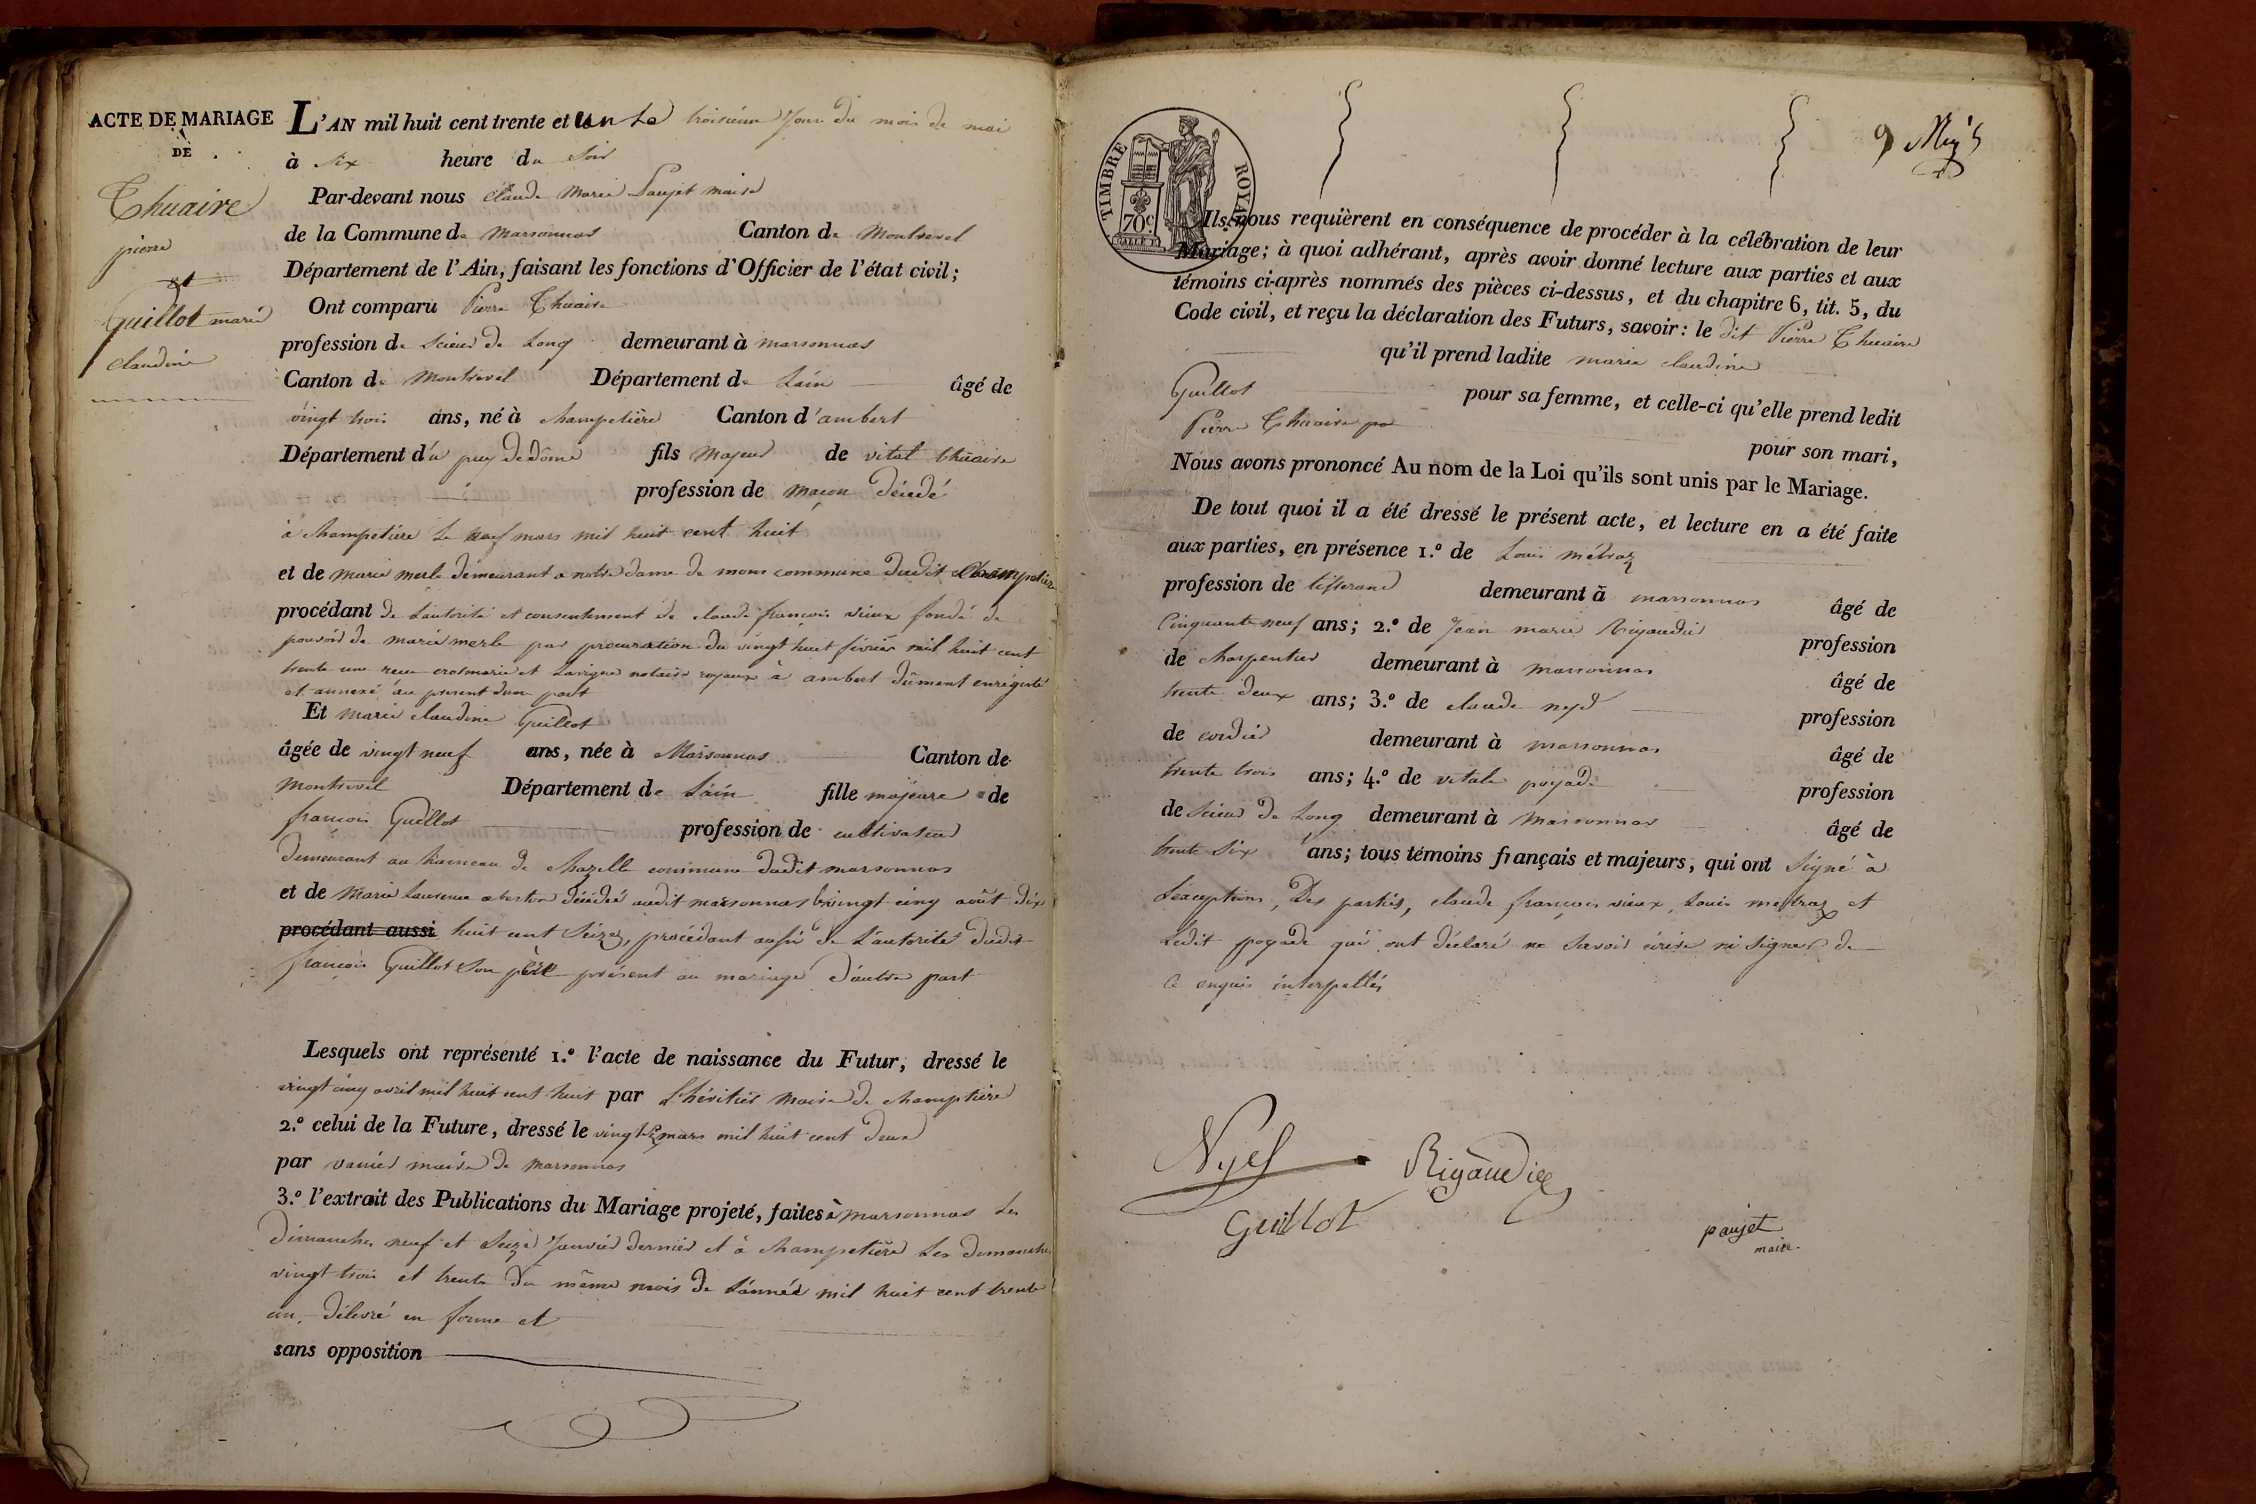 ACTE DE MARIAGE
DE
Thuaire
pierre
et
Guillot marie
claudine
L'AN mil huit cent trente et un Le troisième Jour du mois de mai
à six heure du soir
Par-devant nous claude Marie Paujet maire
de la Commune de Marsonnas Canton de Montrevel
Département de l'Ain, faisant les fonctions d'Officier de l'état civil;
Ont comparu Pierre Thuaire
profession de scieur de Long demeurant à marsonnas
Canton de Montrevel Département de Lain âgé de
vingt trois ans, né à champetière Canton d'ambert
Département du puy de dôme fils majeur de vital thuaire
profession de maçon décédé
à champetière Le neuf mars mil huit cent huit
et de marie merle demeurant a notre dame de mons commune dudit champetière
procédant de Lautorité et consentement de claude françois vieux fondé de
pouvoir de marie merle par procuration du vingt huit février mil huit cent
trente une recu crosmarie et Lavigne notaire royaux à ambert dûment enrégistré
et annexé au present d'une part
Et marie claudine Guillot
âgée de vingt neuf ans, née à Marsonnas Canton de
Montrevel Département de Lain fille majeure de
françois Guillot profession de cultivateur
demeurant au hameau de chazelle commune dudit marsonnas
et de Marie Laurence decédée audit marsonnas le vingt cinq août dix
procédant aussi huit cent seize, procédant aussi de L'autorité dudit
françois Guillot son père présent au mariage d'autre part
Lesquels ont représenté 1.° l'acte de naissance du Futur, dressé le
vingt cinq avril mil huit cent huit par Lhéritier maire de champtière
2.° celui de la Future, dressé le vingt mars mil huit cent deux
par vanier maire de marsonnas
3.° l'extrait des Publications du Mariage projeté, faites à marsonnas Les
dimanches neuf et seize Janvier dernier et à champetière Les dimanches
vingt trois et trente du même mois de L'année mil huit cent trente
un, délivré en forme et
sans opposition
TIMBRE ROYAL
70c
9
Ils nous requièrent en conséquence de procéder à la célébration de leur
Mariage; à quoi adhérant, après avoir donné lecture aux parties et aux
témoins ci-après nommés des pièces ci-dessus, et du chapitre 6, tit. 5, du
Code civil, et reçu la déclaration des Futurs, savoir: le dit Pierre Thuaire
qu'il prend ladite marie claudine
Guillot pour sa femme, et celle-ci qu'elle prend ledit
Pierre Thuaire po pour son mari,
Nous avons prononcé Au nom de la Loi qu'ils sont unis par le Mariage.
De tout quoi il a été dressé le présent acte, et lecture en a été faite
aux parties, en présence 1.° de Louis métraz
profession de tisserand demeurant à marsonnas âgé de
Cinquante neuf ans; 2.° de Jean marie Rigaudié profession
de charpentier demeurant à marsonnas âgé de
trente deux ans; 3.° de claude nyd profession
de cordier demeurant à marsonnas âgé de
trente trois ans; 4.° de vitale poyade profession
de scieur de Long demeurant à Marsonnas âgé de
trente six ans; tous témoins français et majeurs, qui ont signé à
L'exception, Des parties, claude françois vieux, Louis metraz et
Ledit poyade qui ont déclaré ne savoir écrire ni signer de
ce enquis interpellés
Nyd Rigaudié
Guillot
paujet
maire.